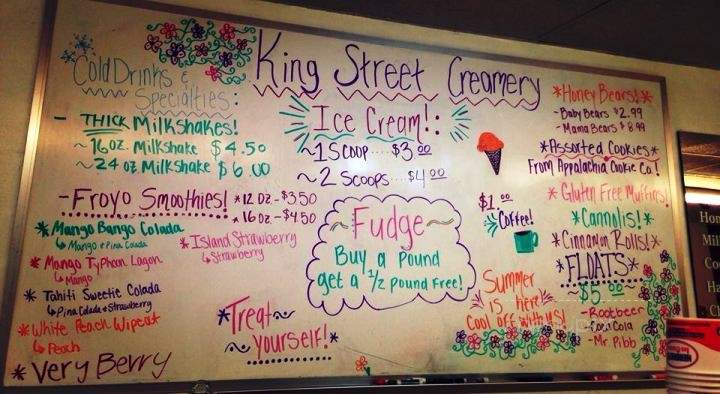 King Street Creamery
Cold Drinks &
Specialties:
- THICK Milkshakes!
~16oz. Milkshake $4.50
~24 oz Milkshake $6.00
-Froyo Smoothies!
*12 OZ - $3.50
*16 oz - $4.50
*Mango Bango Colada
↳Mango & Pina Colada
*Mango Typhoon Lagon
↳Mango
*Tahiti Sweetie Colada
↳Pina Colada & Strawberry
*White Peach Wipeat
↳Peach
*Very Berry
*Island Strawberry
↳Strawberry
*Treat~
~yourself!*
Ice Cream!:
~1 Scoop....$3.00
~2 Scoops....$4.00
~Fudge~
Buy a Pound
get a 1/2 Pound Free!
$1.00
Coffee!
Summer
is here!
Cool off with us!
*Honey Bears!*
-Baby Bears $2.99
-Mama Bears $8.99
*Assorted Cookies*
From Appalachia Cookie Co.!
*Gluten Free Muffins!
*Cannolis!*
*Cinnamon Rolls!*
*FLOATS*
$5.00
-Rootbeer
-Coca Cola
-Mr. Pibb
Hon
Mil
Coo
Ha
Ch